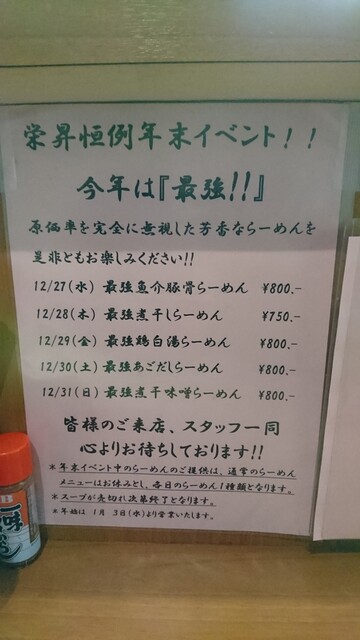 栄昇恒例年末イベント！！
今年は『最強!!』
原価率を完全に無視した芳香ならーめんを
是非ともお楽しみください!!
12/27(水) 最強魚介豚骨らーめん ¥800.-
12/28(木) 最強煮干しらーめん ¥750.-
12/29(金) 最強鶏白湯らーめん ¥800.-
12/30(土) 最強あごだしらーめん ¥800.-
12/31(日) 最強煮干味噌らーめん ¥800.-
皆様のご来店、スタッフ一同
心よりお待ちしております!!
＊年末イベント中のらーめんのご提供は、通常のらーめん
メニューはお休みとし、各日のらーめん1種類となります。
＊スープが売切れ次第終了となります。
＊年始は 1月 3日(水)より営業いたします。
一味